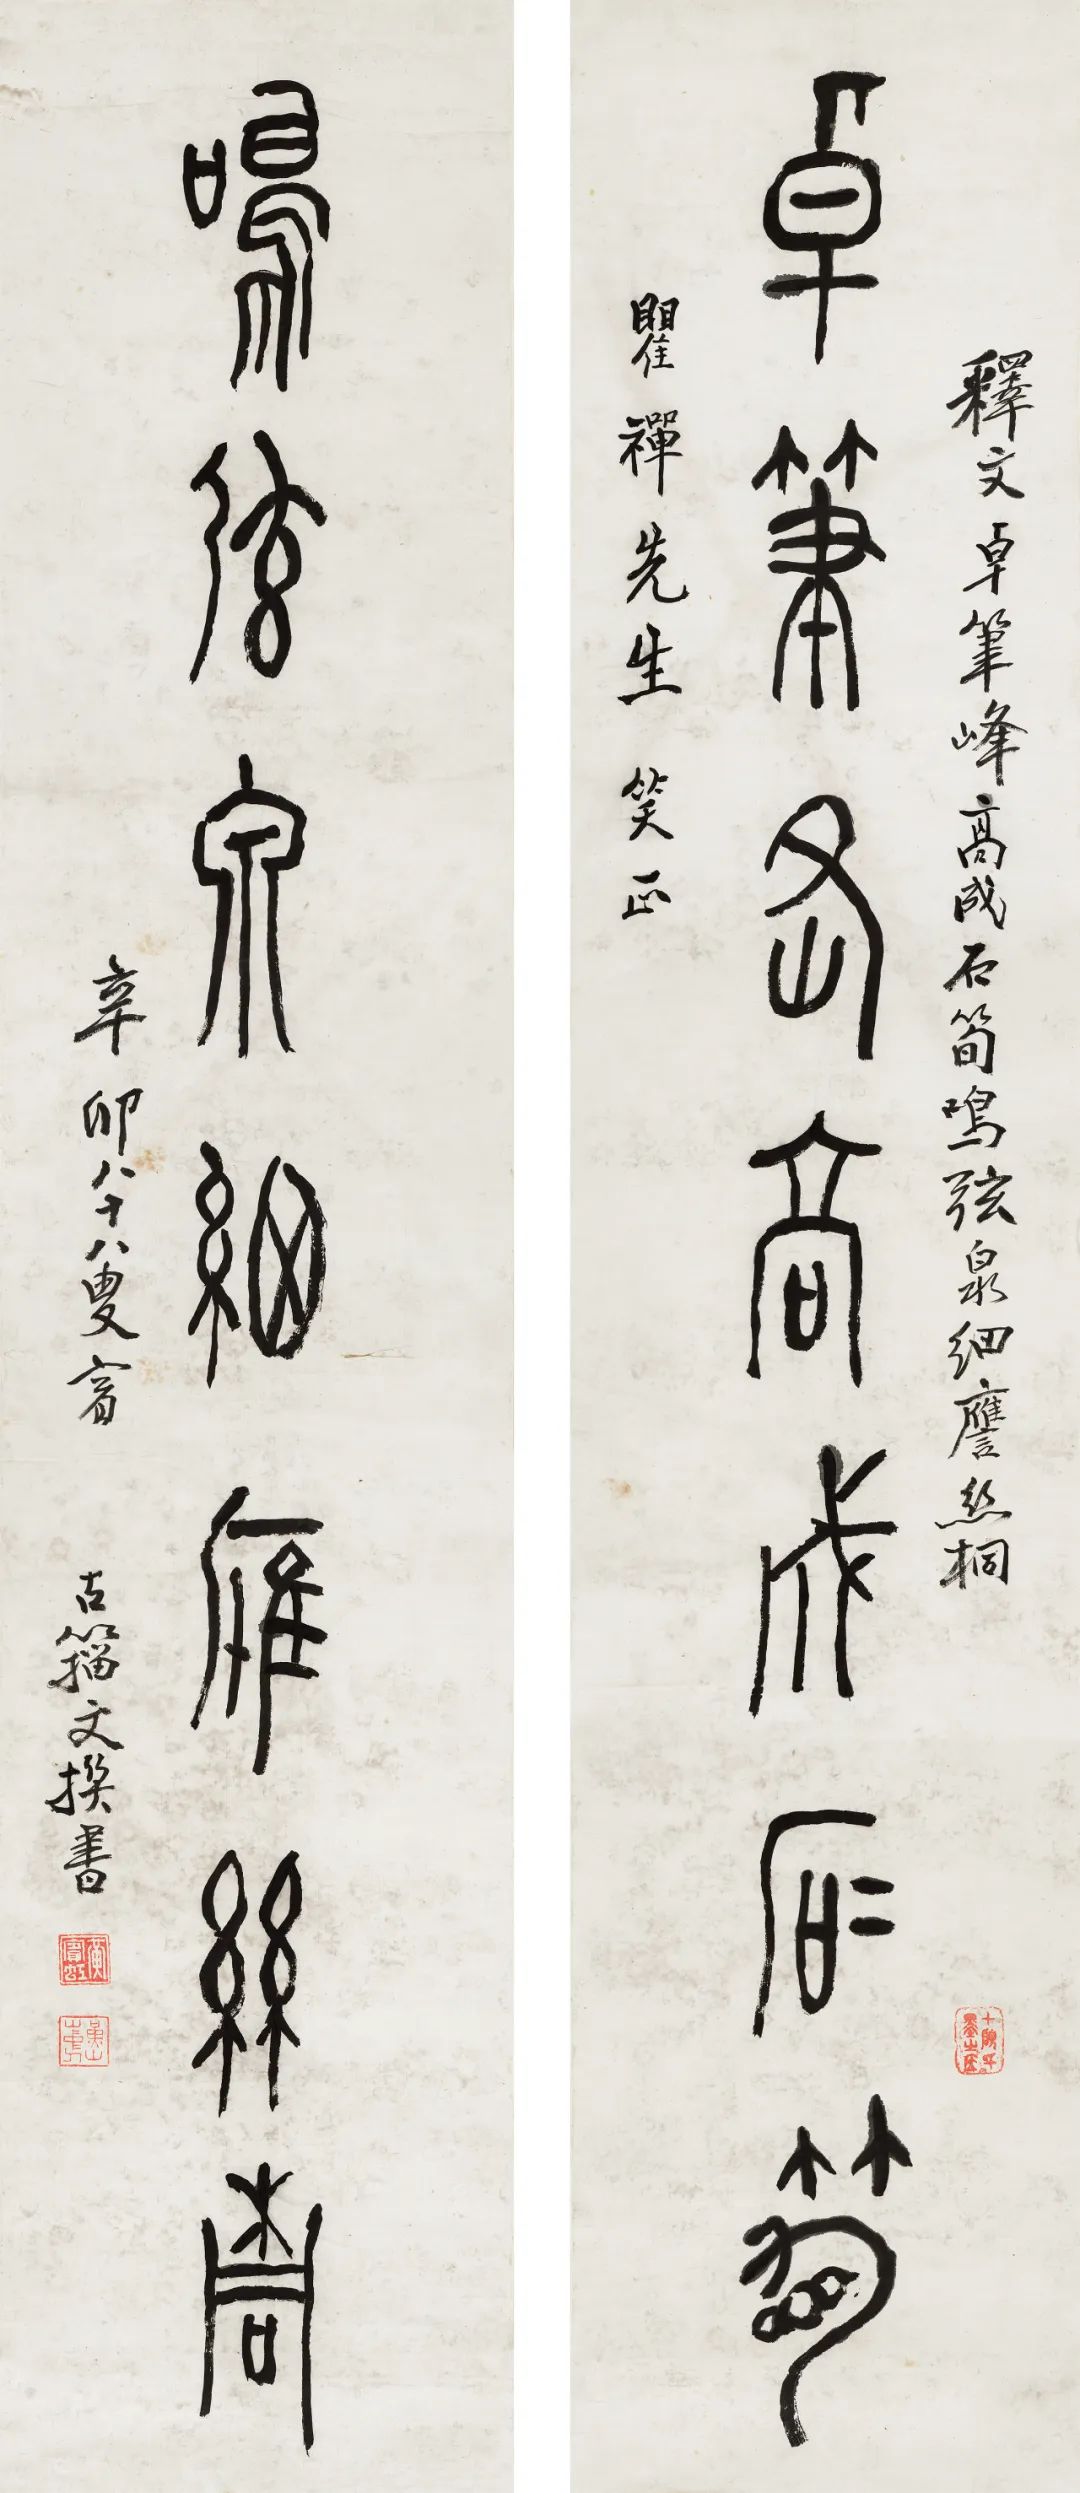 釋文卓筆峰高成石筍鳴弦泉細譍絲桐
卓筆峰高成石筍
瞿禪先生 笑正
鳴弦泉細雁絲桐
辛卯八十八叟賓
古籀文撰書
黃賓虹